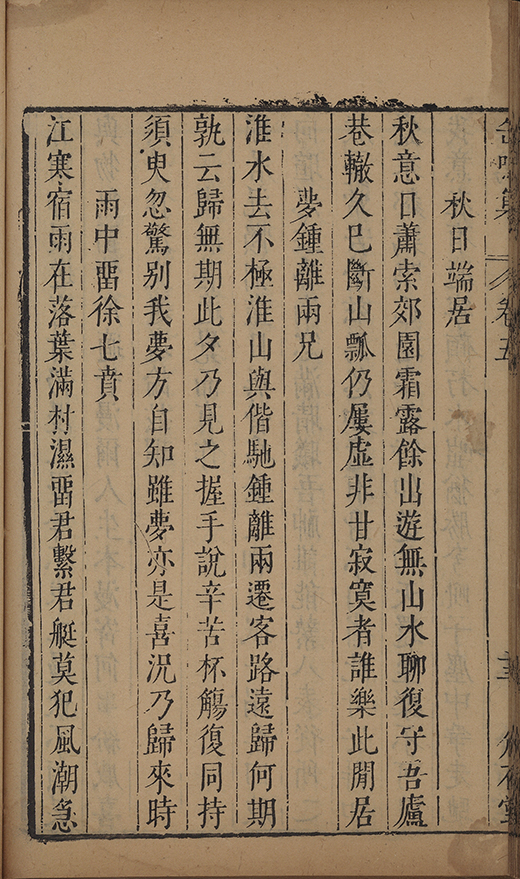 卷五
秋日端居
秋意日蕭索郊園霜露餘出遊無山水聊復守吾廬
巷轍久已斷山瓢仍屢虛非甘寂寞者誰樂此閒居
夢鍾離兩兄
淮水去不極淮山與偕馳鍾離兩遷客路遠歸何期
孰云歸無期此夕乃見之握手說辛苦杯觴復同持
須臾忽驚別我夢方自知雖夢亦是喜況乃歸來時
雨中畱徐七賁
江寒宿雨在落葉滿村濕畱君繫君艇莫犯風潮急